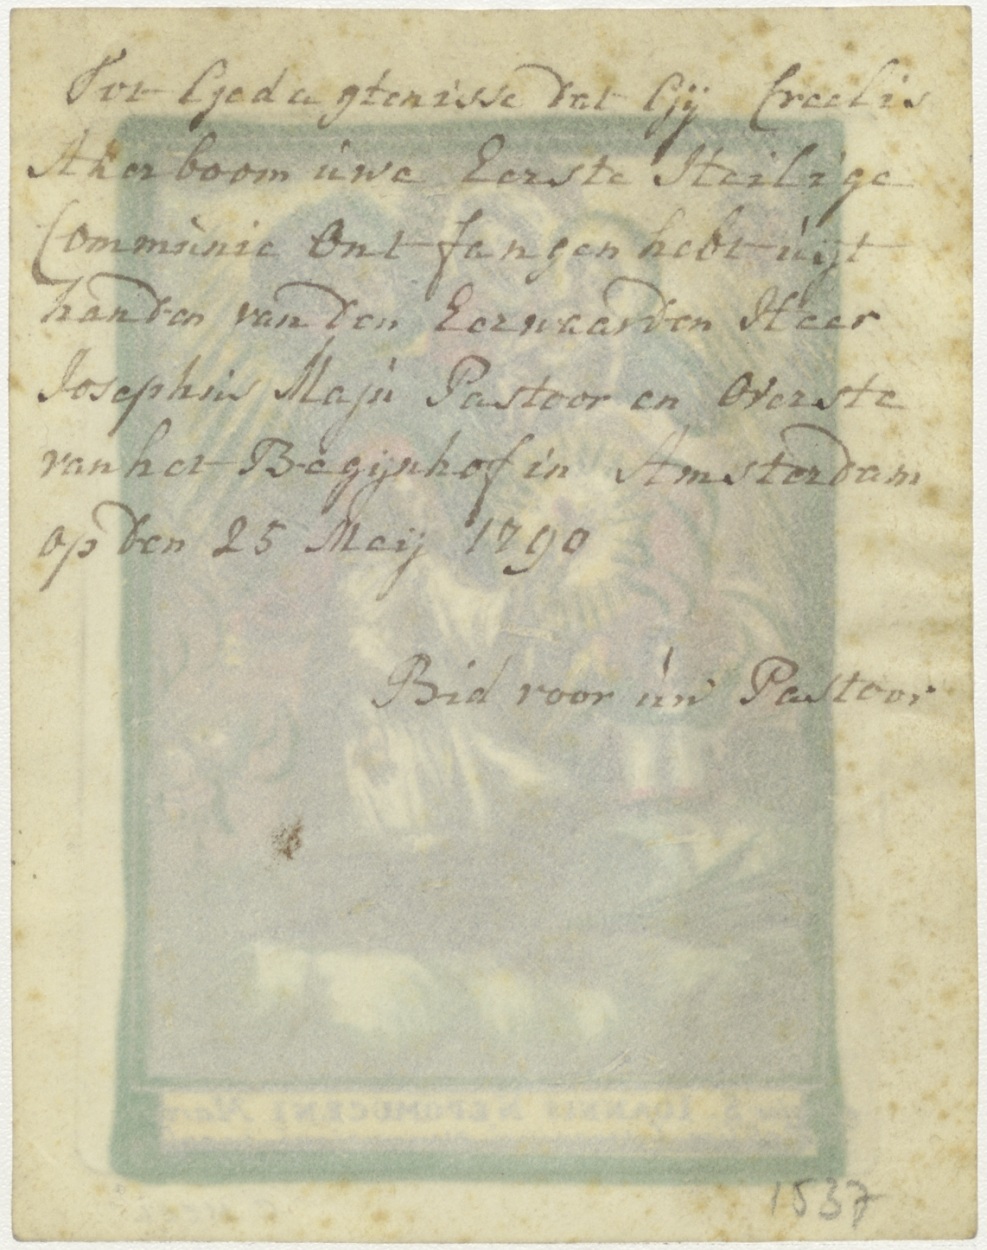 Tot Gedagtenisse dat Gij Creelis
Akerboom uwe Eerste Heilige
Communie Ontfangen hebt uijt
handen van den Eerwaarden Heer
Josephus Maju Pastoor en Overste
van het Begijnhof in Amsterdam
op den 25 Meij 1790
Bid voor uw Pastoor
S. IOANNIS NEPOMUCENI Mart
1537